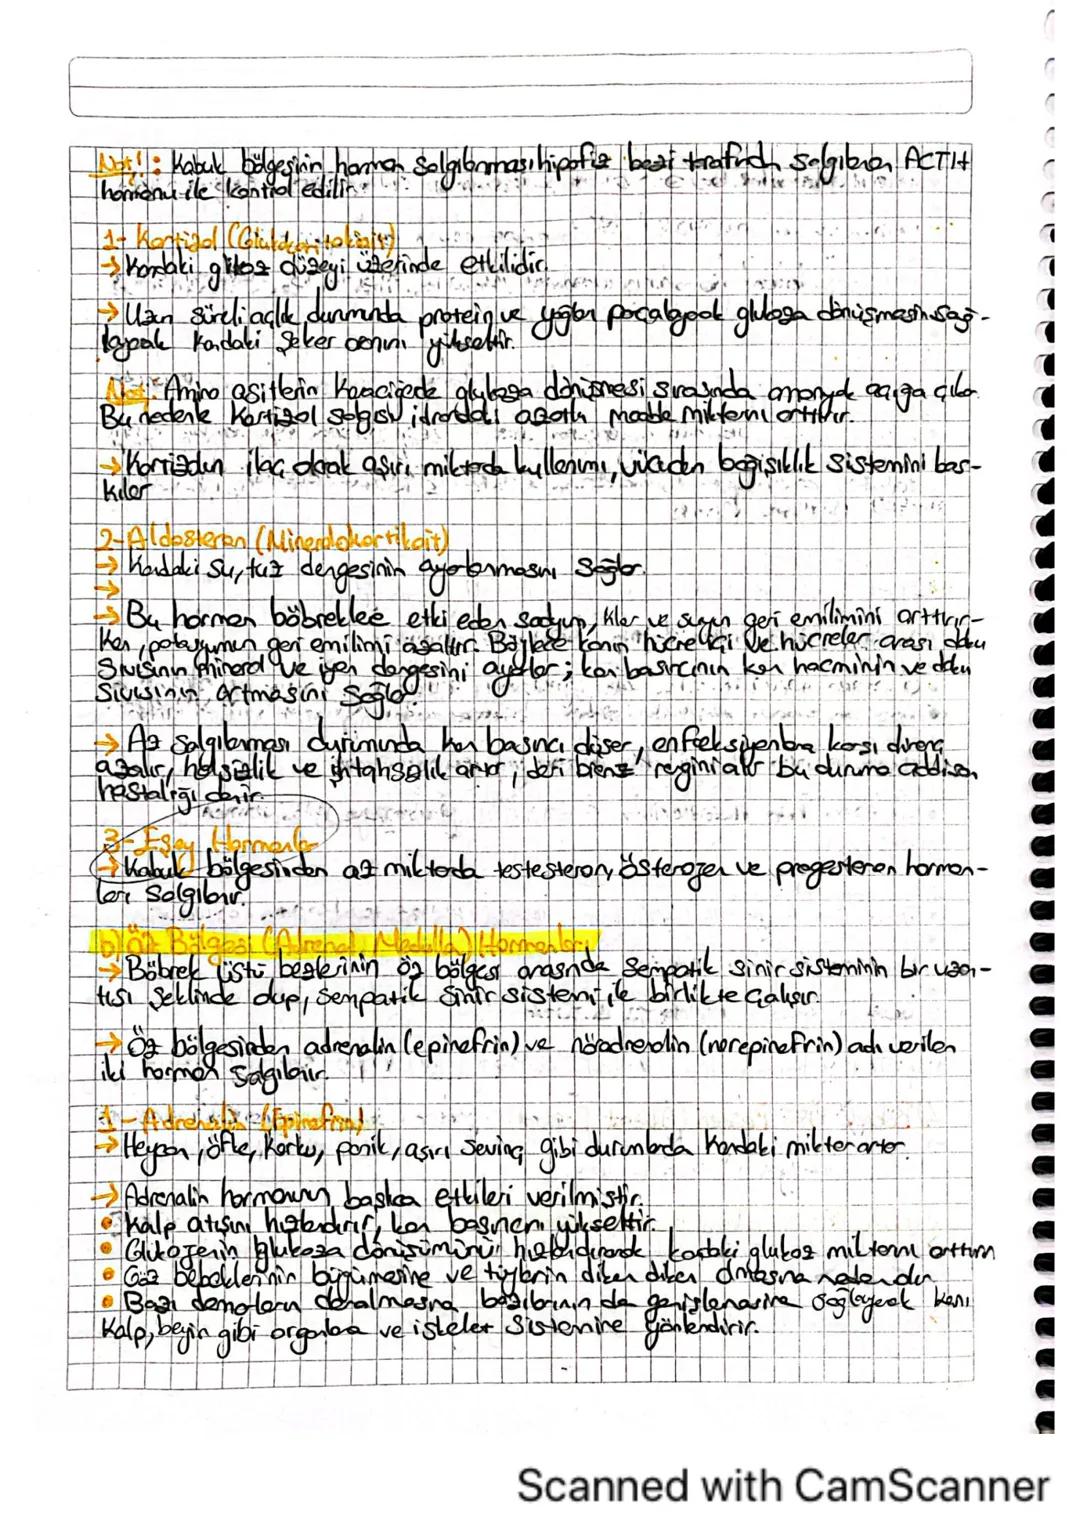 Not!: Kabuk bölgesinin hormon salgılanması hipofiz bezi trafındn salgılanan ACTH
hormonu ile kontrol edilir.
1- Kortizol (Glukokortikoit)
→ Kandaki glikoz düzeyi üzerinde etkilidir.
→ Uzun süreli açlık durumunda protein ve yağları parçalayarak glukoza dönüşmesini sağ-
layarak kandaki şeker oranını yükseltir.
Not: Amino asitlerin karaciğerde glukoza dönüşmesi sırasında amonyak açığa çıkar.
Bu nedenle kortizol salgısı idrardaki azotlu madde miktarını arttırır.
→ Kortizolun ilaç olarak aşırı miktarda kullanımı, vücudun bağışıklık sistemini bas-
kılar
2- Aldosteron (Mineralokortikoit)
→ Kandaki su, tuz dengesinin ayarlanmasını sağlar.
→
→ Bu hormon böbreklee etki eden sodyum, klor ve suyun geri emilimini arttırır-
ken, potasyumun geri emilimi azaltır. Böylece kanın hücre içi ve hücreler arası doku
sıvısının mineral ve iyon dengesini ayarlar; kan basıncının kan hacminin ve doku
sıvısının artmasını sağlar.
→ Az salgılanması durumunda kan basıncı düşer, enfeksiyonlara karşı direnç
azalır, halsizlik ve iştahsızlık artar, deri bronz rengini alır bu duruma addison
hastalığı denir.
3- Eşey Hormonlar
→ Kabuk bölgesinden az miktarda testesteron, österojen ve progesteron hormon-
ları salgılanır.
b) Öz Bölgesi (Adrenal Medulla) Hormonları
→ Böbrek üstü bezlerinin öz bölgesi arasında sempatik sinir sisteminin bir uzan-
tısı şeklinde olup, sempatik sinir sistemi ile birlikte çalışır.
→ Öz bölgesinden adrenalin (epinefrin) ve nöradrenalin (norepinefrin) adı verilen
iki hormon salgılanır.
1- Adrenalin (Epinefrin)
→ Heycan, öfke, korku, panik, aşırı sevinç gibi durumlarda kandaki miktar artar.
→ Adrenalin hormonun başlıca etkileri verilmiştir.
• Kalp atışını hızlandırır, kan basıncını yükseltir.
• Glikojenin glukoza dönüşümünü hızlandırarak kandaki glukoz miktarını arttırır
• Göz bebeklerinin büyümesine ve tüylerin diken diken olmasına neden olur
• Bazı damarların daralmasına bazılarının da genişlemesine sağlayarak kanı
Kalp, beyin gibi organlara ve iskelet sistemine yönlendirir.
Scanned with CamScanner